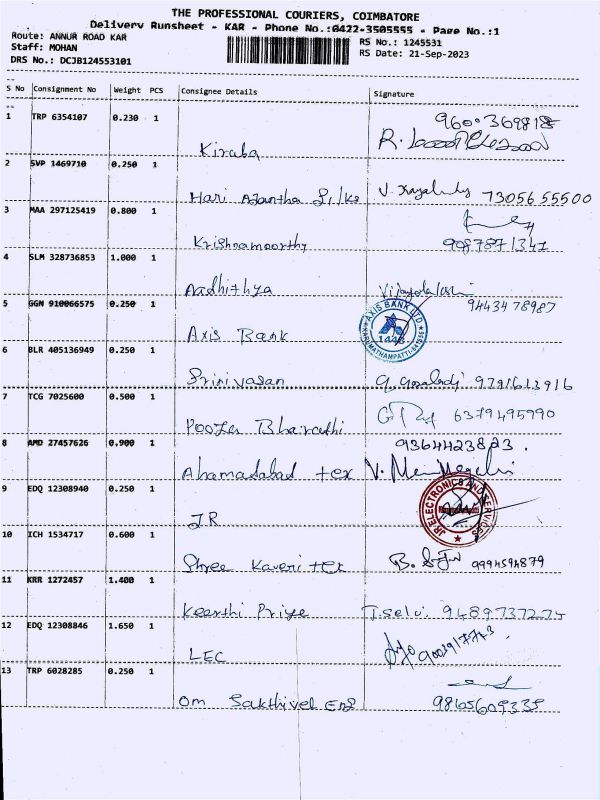 THE PROFESSIONAL COURIERS, COIMBATORE
Delivery Runsheet - KAR - Phone No.:0422-3505555 - Page No.:1
Route: ANNUR ROAD KAR
RS No.: 1245531
Staff: MOHAN
RS Date: 21-Sep-2023
DRS No.: DCJB124553101
S No Consignment No Weight PCS Consignee Details Signature
1 TRP 6354107 0.230 1
Kiruba
2 SVP 1469710 0.250 1
Hari Ajantha Silks 73056 55500
3 MAA 297125419 0.800 1
Krishnamoorthy 9087871341
4 SLM 328736853 1.000 1
Aadhithya
9443478987
5 GGN 910066575 0.250 1
Axis Bank
AXIS BANK LTD
1443
6 BLR 405136949 0.250 1
Srinivasan 9791613916
7 TCG 7025600 0.500 1
6379495990
Pooja Bharathi
8 AMD 27457626 0.900 1
9364423823.
Ahamadabad tex
9 EDQ 12308940 0.250 1
JR
JR ELECTRONICS AND SERVICES
10 ICH 1534717 0.600 1
Shree Kaveri tex 9994594879
11 KRR 1272457 1.400 1
Keerthi Priya T.selvi. 9489737274
12 EDQ 12308846 1.650 1
LEC
13 TRP 6028285 0.250 1
Om Sakthivel Eng 9865609335